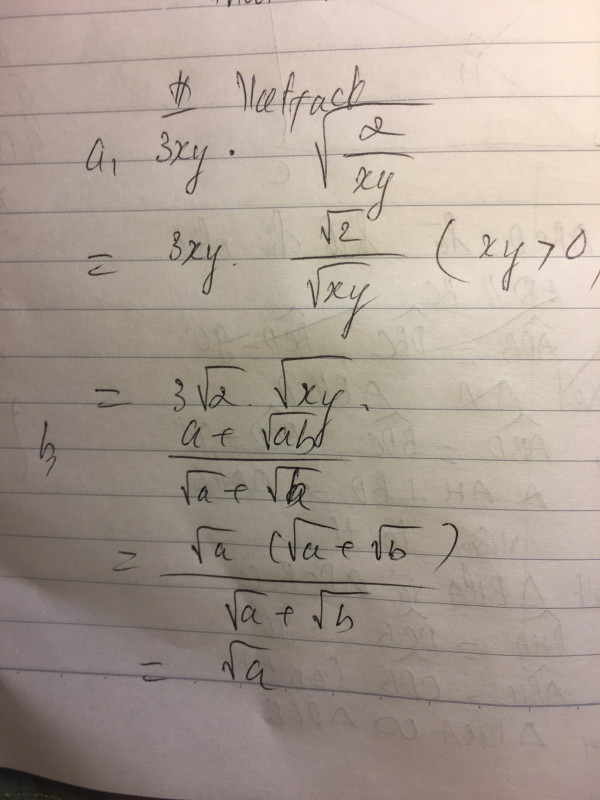 a, 3xy . √(2/xy)
= 3xy . √2/√xy (xy > 0)
= 3√2 . √xy .
b, (a + √ab)/(√a + √b)
= √a (√a + √b)/(√a + √b)
= √a